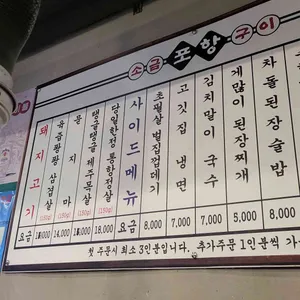 소금 포항 구이
돼지고기 요금
육즙팡팡 삼겹살 (150g) 14,000
문지마 (150g)
탱글탱글 제주목살 (150g) 18,000
당일한정 통항정살 (150g) 18,000
사이드메뉴 요금
초필살 벌집껍데기 8,000
고깃집 냉면 7,000
김치말이 국수 7,000
게많이 된장찌개 5,000
차돌된장술밥 8,000
첫 주문시 최소 3인분입니다. 추가주문 1인분씩 가